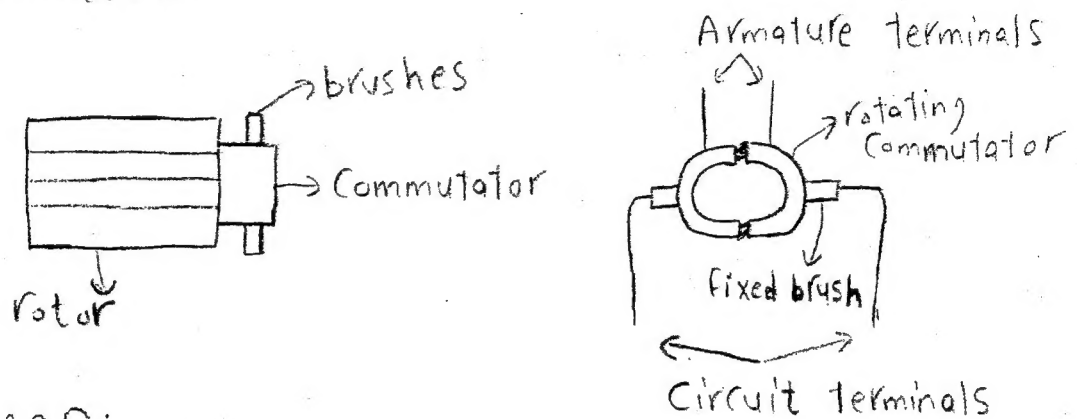 brushes
Commutator
rotor
Armature terminals
rotating
Commutator
fixed brush
Circuit terminals